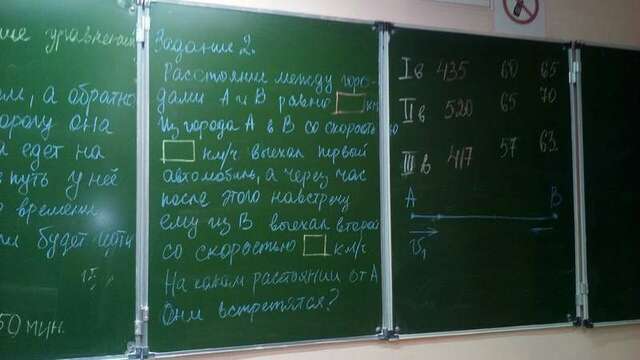 ие уравнений
м, а обратно
дорогу она
едет на
путь у неё
времени
будет идти
50 мин.
Задание 2.
Расстояние между горо-
дами А и В равно км
Из города А в В со скоростью
км/ч выехал первый
автомобиль, а через час
после этого навстречу
ему из В выехал второй
со скоростью км/ч
На каком расстоянии от А
Они встретятся?
I в 435 60 65
II в 520 65 70
III в 417 57 63
А В
v₁